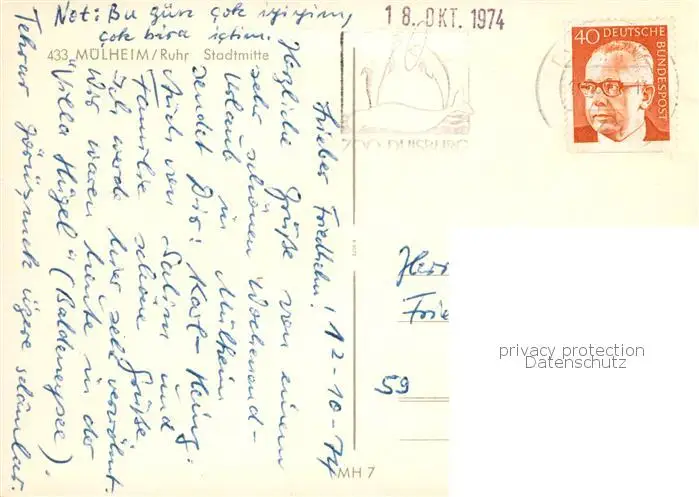 Not: Bu gün çok içiyim,
çok bira içtim.
18. OKT. 1974
433 MÜLHEIM/Ruhr Stadtmitte
ZOO DUISBURG
40 DEUTSCHE BUNDESPOST
12-10-74
Lieber Friedhelm!
Herzliche Grüße von einem
sehr schönen Wochenend-
Urlaub in Mülheim
sendet Dir: Karl-Heinz
Auch von Salim und
Familie schöne Grüße.
Ich werde hier sehr verwöhnt.
Wir waren heute in der
"Villa Hügel" (Baldeneysee).
Tekrar görüşmek üzere selâmlar.
Herr
Frie
59
MH 7
privacy protection
Datenschutz